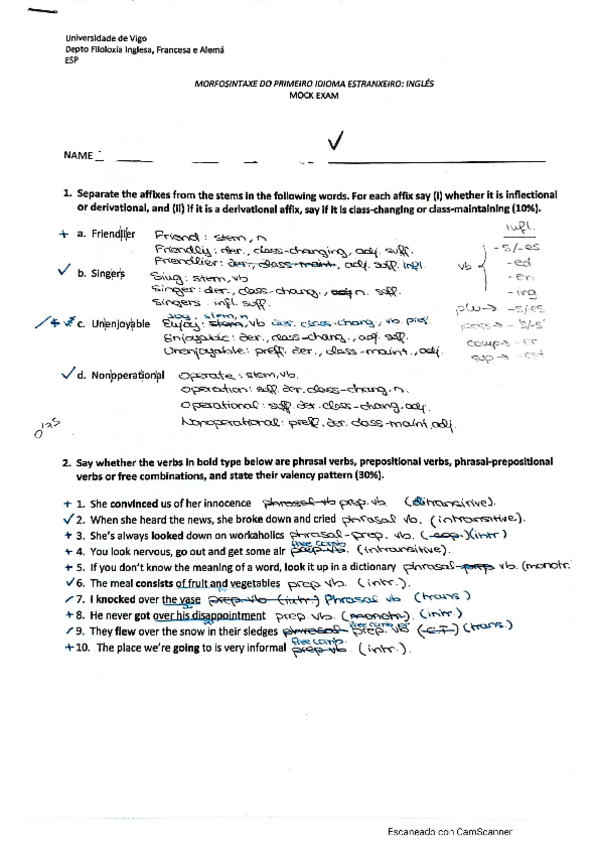 Universidade de Vigo
Depto Filoloxía Inglesa, Francesa e Alemá
ESP
MORFOSINTAXE DO PRIMEIRO IDIOMA ESTRANXEIRO: INGLÉS
MOCK EXAM
NAME
1. Separate the affixes from the stems in the following words. For each affix say (I) whether it is inflectional
or derivational, and (II) if it is a derivational affix, say if it is class-changing or class-maintaining (10%).
infl.
+ a. Friendlier Friend: stem, n
Friendly: der., class-changing, adj. suff.
Friendlier: der., class-maint., adj. suff. infl.
vb -s/-es
-ed
-en
-ing
✓ b. Singers Sing: stem, vb
Singer: der., class-chang., n. suff.
Singers: infl. suff.
plu → -s/-es
poss → -'s/-s'
comp → -er
sup → -est
c. Unenjoyable Joy: stem, n
Enjoy: stem, vb der. class-chang, vb pref.
Enjoyable: der., class-chang., adj. suff.
Unenjoyable: preff. der., class-maint., adj.
✓ d. Nonopperational Operate: stem, vb.
Operation: suff. der. class-chang. n.
Operational: suff der. class-chang. adj.
Nonoperational: preff. der. class-maint. adj.
2. Say whether the verbs in bold type below are phrasal verbs, prepositional verbs, phrasal-prepositional
verbs or free combinations, and state their valency pattern (30%).
+ 1. She convinced us of her innocence phrasal vb prep. vb (ditransitive).
✓ 2. When she heard the news, she broke down and cried phrasal vb. (intransitive).
+ 3. She's always looked down on workaholics phrasal-prep. vb. (intr)
free comb.
+ 4. You look nervous, go out and get some air prep vb. (intransitive).
+ 5. If you don't know the meaning of a word, look it up in a dictionary phrasal-prep vb. (monotr.
✓ 6. The meal consists of fruit and vegetables prep vb. (intr.).
/ 7. I knocked over the vase prep vb (intr) Phrasal vb (trans)
+ 8. He never got over his disappointment prep vb. (monotr.). (intr)
free comb
/ 9. They flew over the snow in their sledges phrasal- prep. vb (trans.)
free comb.
+ 10. The place we're going to is very informal prep vb. (intr.).
Escaneado con CamScanner